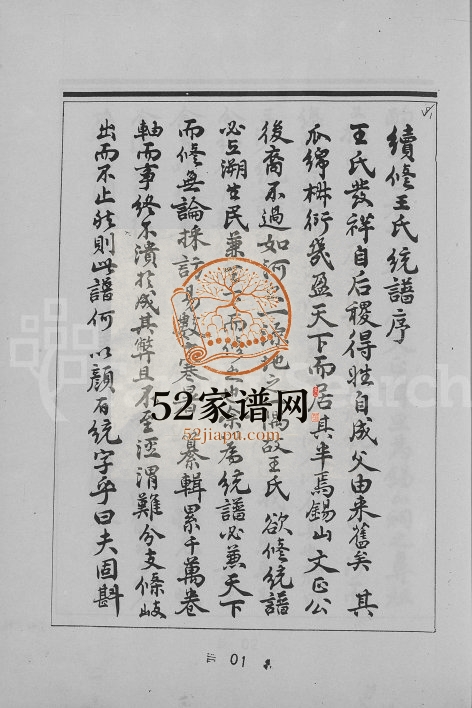 續修王氏統譜序
王氏發祥自后稷得姓自成父由來舊矣其
瓜綿栁衍幾盈天下而居其半焉錫山文正公
後裔不過如河之一源地之隅故王氏欲修統譜
必上溯生民兼而宗爲統譜必兼天下
而修無論採訪易數寒暑纂輯累千萬卷
軸而事終不潰於成其弊且不至涇渭難分支條岐
出而不止然則此譜何以顏有統字乎曰夫固斟
52家谱网
52jiapu.com
01